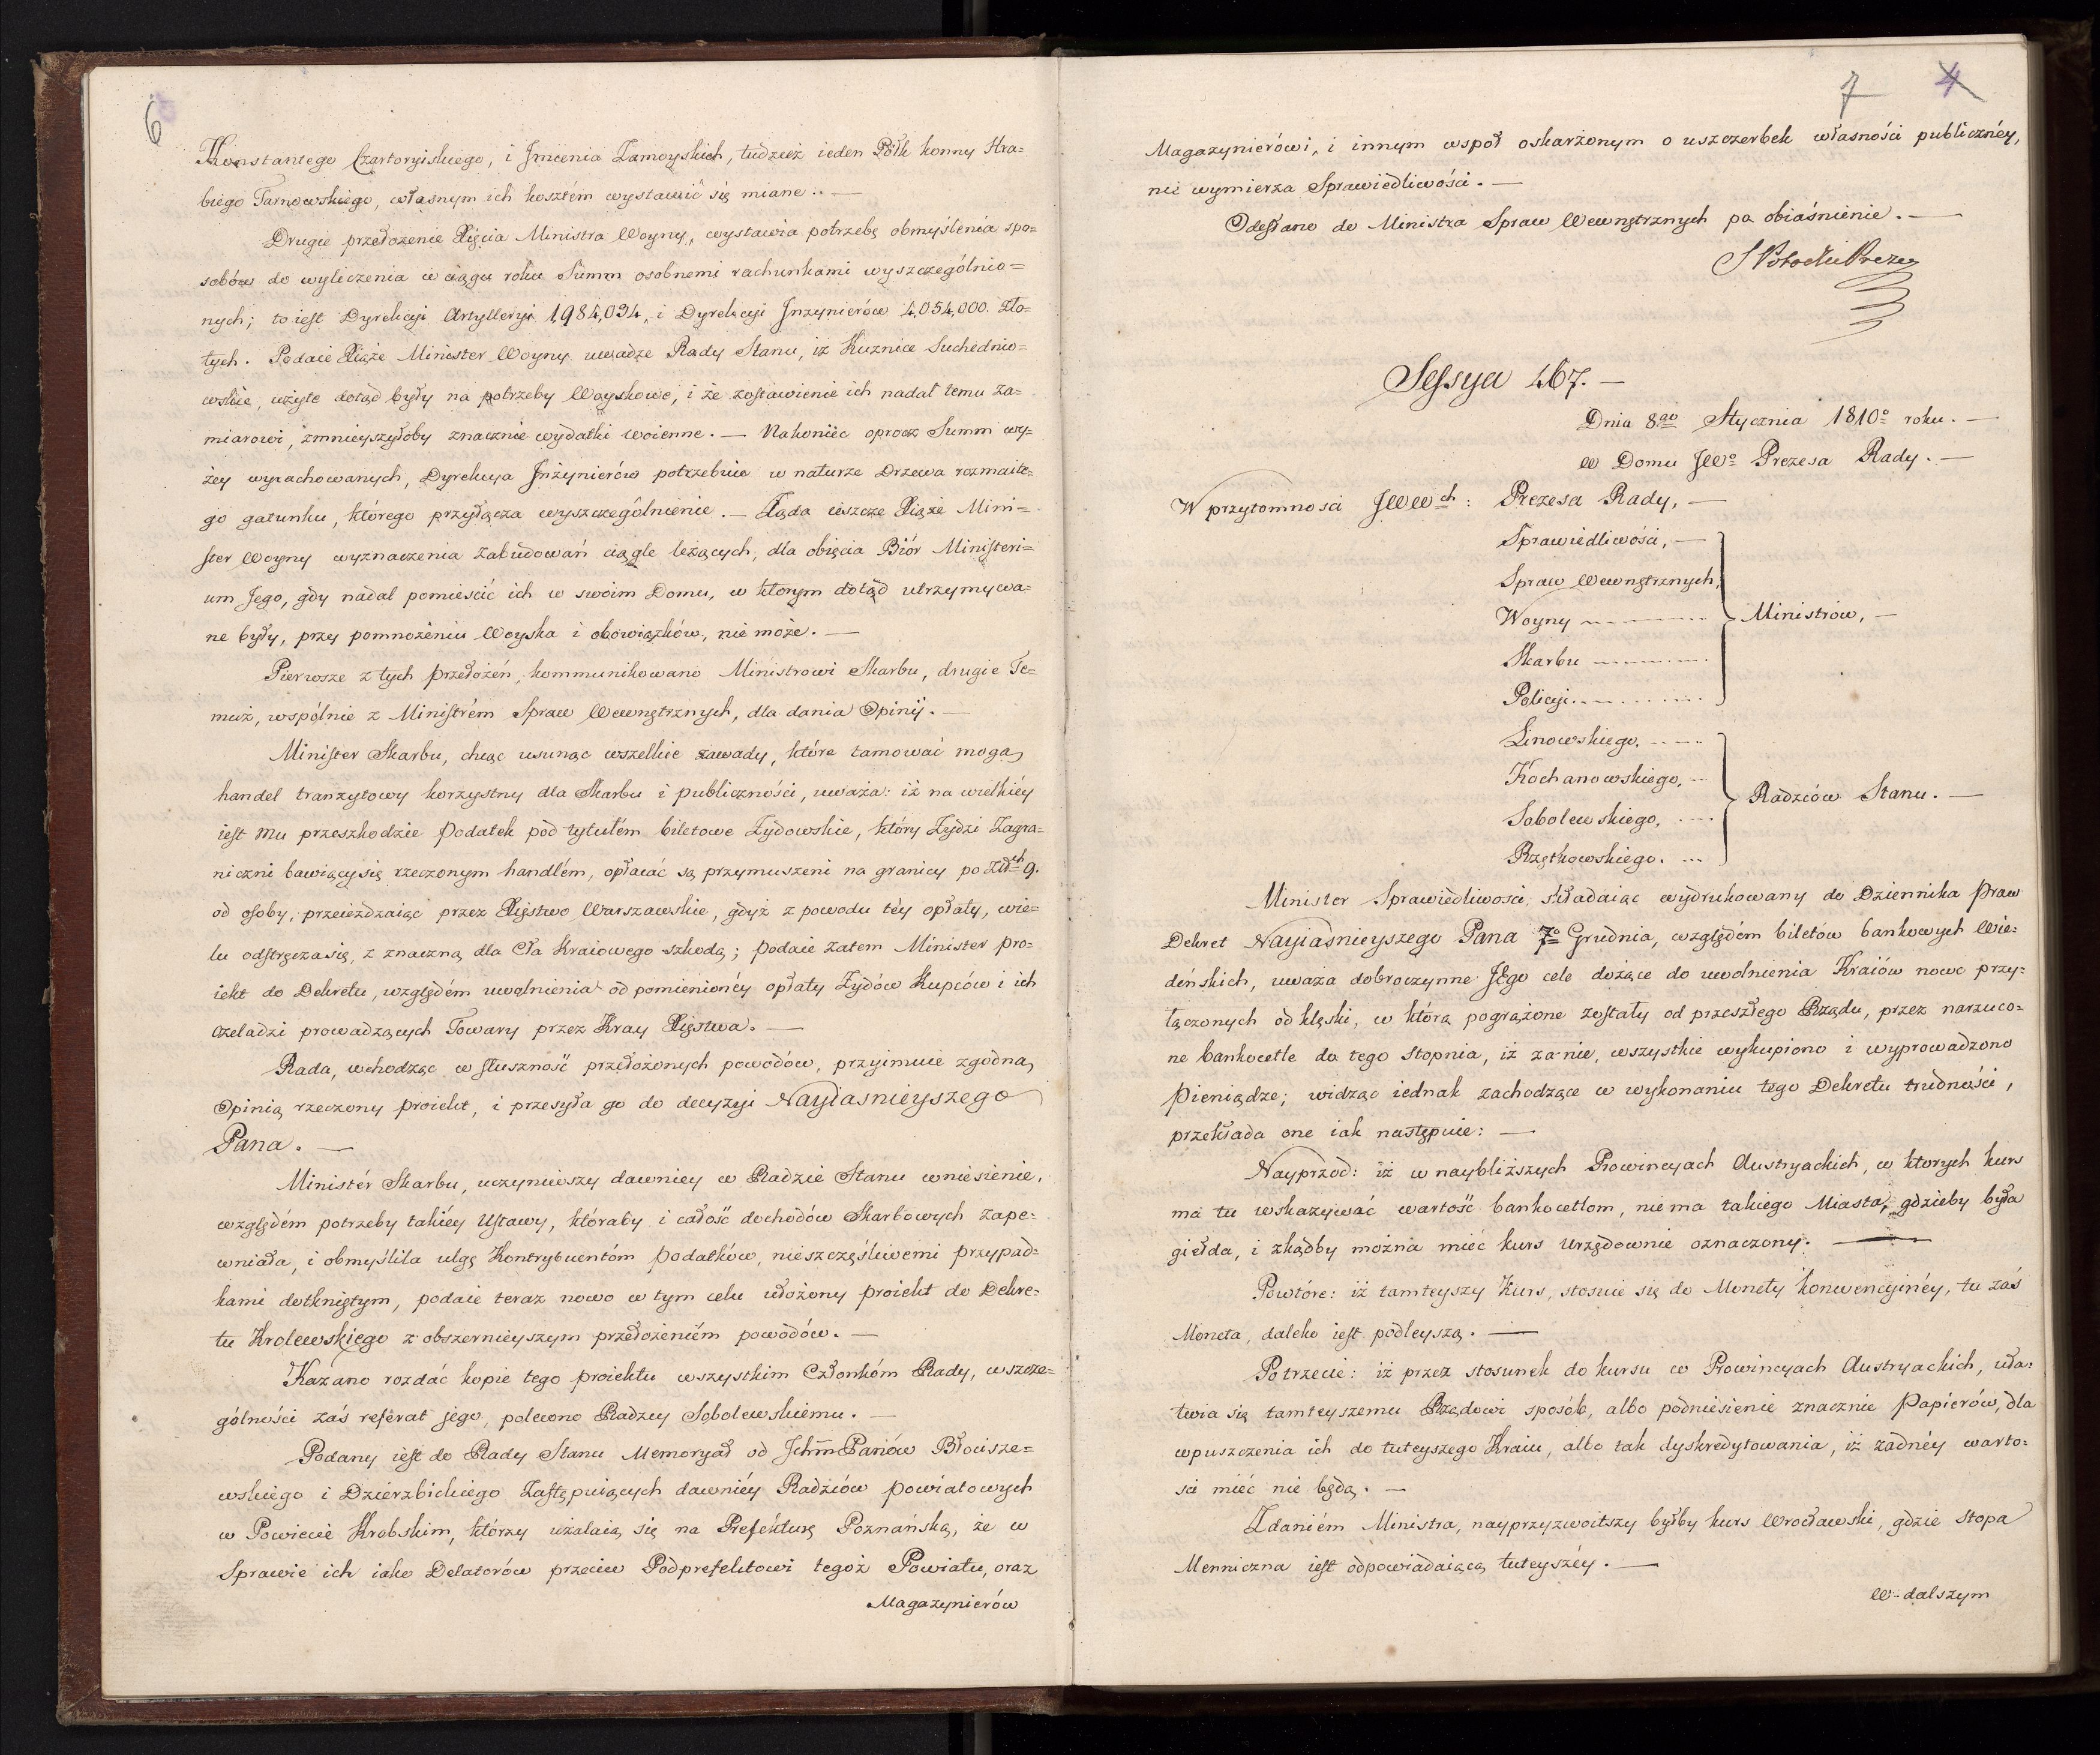 6
Konstantego Czartoryiskiego, i Jmienia Zamoyskich, tudzież ieden Półk konny Hra=
biego Tarnowskiego, własnym ich kosztém wystawić się miane. —
Drugie przełożenie Xięcia Ministra Woyny, wystawia potrzebę obmyślenia spo=
sobów do wyliczenia w ciągu roku Summ osobnemi rachunkami wyszczególnio=
nych; to iest Dyrekcyi Artylleryi 1,984,034, i Dyrekcyi Jnżynierów 4,054,000. Zło=
tych. Podaie Xiąże Minister Woyny uwadze Rady Stanu, iż Kuznice Suchednio=
wskie, użyte dotąd były na potrzeby Woyskowe, i że zostawienie ich nadal temu za=
miarowi, zmnieyszyłoby znacznie wydatki woienne. — Nakoniec oprocz Summ wy=
żey wyrachowanych, Dyrekcya Jnżynierów potrzebuie w naturze Drzewa rozmaite=
go gatunku, którego przyłącza wyszczególnienie. — Żąda ieszcze Xiąże Mini=
ster Woyny wyznaczenia Zabudowań ciągle leżących, dla obięcia Biór Ministeri=
um Jego, gdy nadal pomieścić ich w swoim Domu, w którym dotąd utrzymywa=
ne były, przy pomnożeniu Woyska i obowiązków, nie może. —
Pierwsze z tych przełożeń, kommunikowano Ministrowi Skarbu, drugie Te=
muż, wspólnie z Ministrém Spraw Wewnętrznych, dla dania Opinij. —
Minister Skarbu, chcąc usunąc wszelkie zawady, które tamować mogą
handel tranzytowy korzystny dla Skarbu i publiczności, uważa: iż na wielkiéy
iest mu przeszkodzie Podatek pod tytułém biletowe Żydowskie, który Żydzi Zagra=
niczni bawiący się rzeczonym handlém, opłacać są przymuszeni na granicy po Złłch 9.
od osoby, przeieżdzaiąc przez Xięstwo Warszawskie, gdyż z powodu téy opłaty, wie=
lu odstręcza się, z znaczną dla Cła Kraiowego szkodą; podaie zatem Minister pro=
iekt do Dekretu, względém uwolnienia od pomienionéy opłaty Żydów Kupców i ich
czeladzi prowadzących Towary przez Kray Xięstwa. —
Rada, wchodząc w słuszność przełożonych powodów, przyimuie zgodną
Opinią rzeczony proiekt, i przesyła go do decyzyi Nayiasnieyszego
Pana. —
Ministér Skarbu, uczyniwszy dawniey w Radzie Stanu wniesienie,
względém potrzeby takiéy Ustawy, któraby i całość dochodów Skarbowych zape=
wniała, i obmyśliła ulgę Kontrybuentóm Podatków, nieszczęśliwemi przypad=
kami dotkniętym, podaie teraz nowo w tym celu ułożony proiekt do Dekre=
tu Krolewskiego z obszernieyszym przełożeniém powodów. —
Kazano rozdać kopie tego proiektu wszystkim Członkóm Rady, w szcze=
gólności zaś referat jego, polecono Radzcy Sobolewskiemu. —
Podany iest do Rady Stanu Memoryał od Jchm Panów Błocisze=
wskiego i Dzierzbickiego Zastępuiących dawniéy Radzców Powiatowych
w Powiecie Krobskim, którzy użalaią się na Prefekturę Poznańską, że w
Sprawie ich iako Delatorów przeciw Podprefektowi tegoż Powiatu, oraz
Magazynierów
7 4
Magazynierówi, i innym wspoł oskarżonym o uszczerbek własności publicznéy,
nie wymierza Sprawiedliwości. —
Odesłano do Ministra Spraw Wewnętrznych po obiaśnienie. —
S Potocki Prezes
Sessya 467. —
Dnia 8go Stycznia 1810o roku. —
W Domu JWo Prezesa Rady. —
W przytomnosci JWWch: Prezesa Rady, —
Sprawiedliwości, —
Spraw Wewnętrznych,
Woyny
Ministrów, —
Skarbu
Policyi
Linowskiego,
Kochanowskiego,
Radzców Stanu. —
Sobolewskiego,
Rzętkowskiego.
Minister Sprawiedliwosci, składaiąc wydrukowany do Dziennika Praw
Dekret Nayiasnieyszego Pana 7o Grudnia, względém biletów bankowych Wie=
deńskich, uważa dobroczynne JEgo cele dążące do uwolnienia Kraiów nowo przy=
łączonych od klęski, w którą pogrążone zostały od przeszłego Rządu, przez narzuco=
ne bankocetle do tego stopnia, iż za nie, wszystkie wykupiono i wyprowadzono
Pieniądze; widząc iednak zachodzące w wykonaniu tego Dekretu trudności,
przekłada one iak następuie: —
Nayprzod: iż w naybliższych Prowincyach Austryackich, w ktorych kurs
ma tu wskazywać wartość bankocetlom, nie ma takiego Miasta, gdzieby była
giełda, i zkądby można mieć kurs urzędownie oznaczony. —
Powtóre: iż tamteyszy Kurs, stosuie się do Monety konwencyinéy, tu zaś
Moneta, daleko iest podleyszą. —
Potrzecie: iż przez stosunek do kursu w Prowincyach Austryackich, uła=
twia się tamteyszemu Rządowi sposób, albo podniesienie znacznie Papiérów, dla
wpuszczenia ich do tuteyszego Kraiu, albo tak dyskredytowania, iż żadnéy warto=
sci mieć nie będą. —
Zdaniém Ministra, nayprzyzwoitszy byłby kurs Wrocławski, gdzie stopa
Menniczna iest odpowiadaiącą tuteyszéy. —
W dalszym